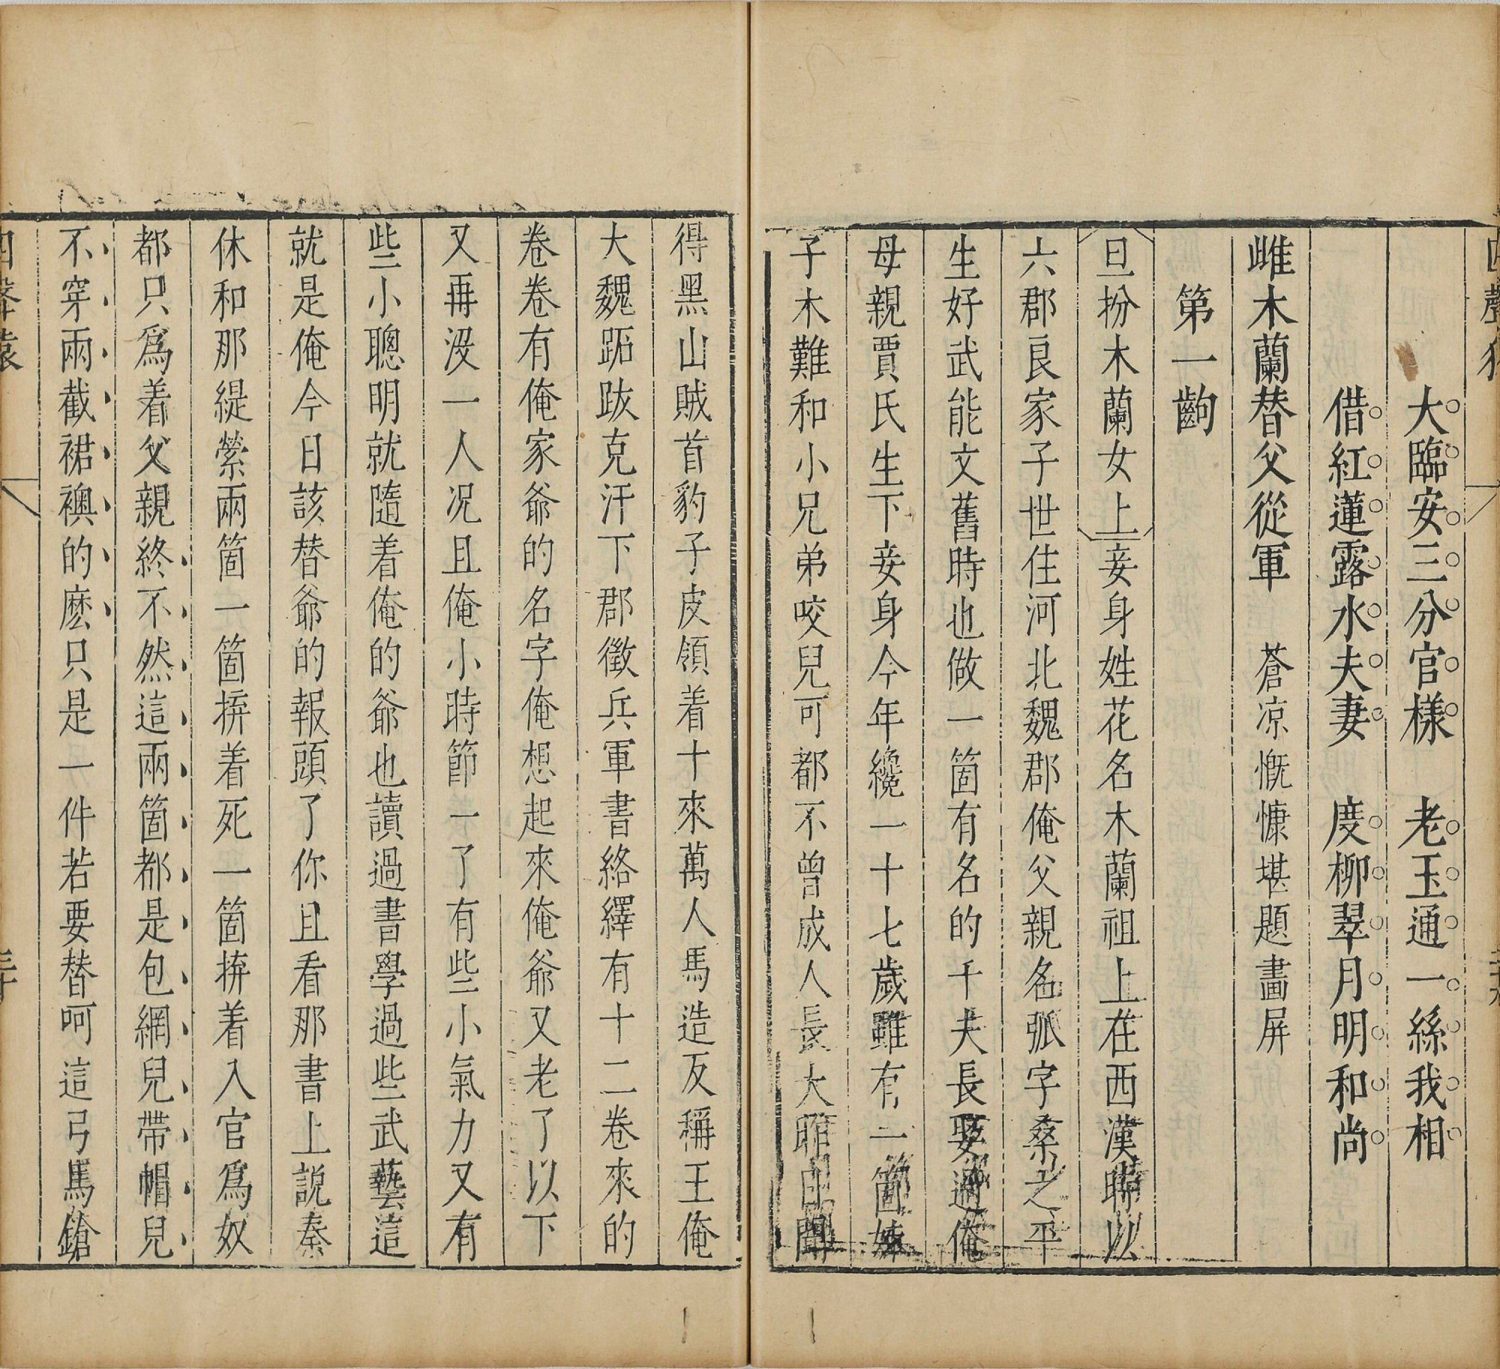 四聲猿
大臨安三分官樣　老玉通一絲我相
借紅蓮露水夫妻　度柳翠月明和尚
雌木蘭替父從軍　蒼凉慨慷堪題畫屏
第一齣
旦扮木蘭女上妾身姓花名木蘭祖上在西漢時以
六郡良家子世住河北魏郡俺父親名弧字桑之平
生好武能文舊時也做一箇有名的千夫長娶過俺
母親賈氏生下妾身今年纔一十七歲雖有一箇妹
子木難和小兄弟咬兒可都不曾成人長大昨日聞
得黑山賊首豹子皮領着十來萬人馬造反稱王俺
大魏跖跋克汗下郡徵兵軍書絡繹有十二卷來的
卷卷有俺家爺的名字俺想起來俺爺又老了以下
又再沒一人况且俺小時節一了有些小氣力又有
些小聰明就隨着俺的爺也讀過書學過些武藝這
就是俺今日該替爺的報頭了你且看那書上說秦
休和那緹縈兩箇一箇拚着死一箇拚着入官爲奴
都只爲着父親終不然這兩箇都是包網兒帶帽兒
不穿兩截裙襖的麽只是一件若要替呵這弓馬鎗
四聲猿